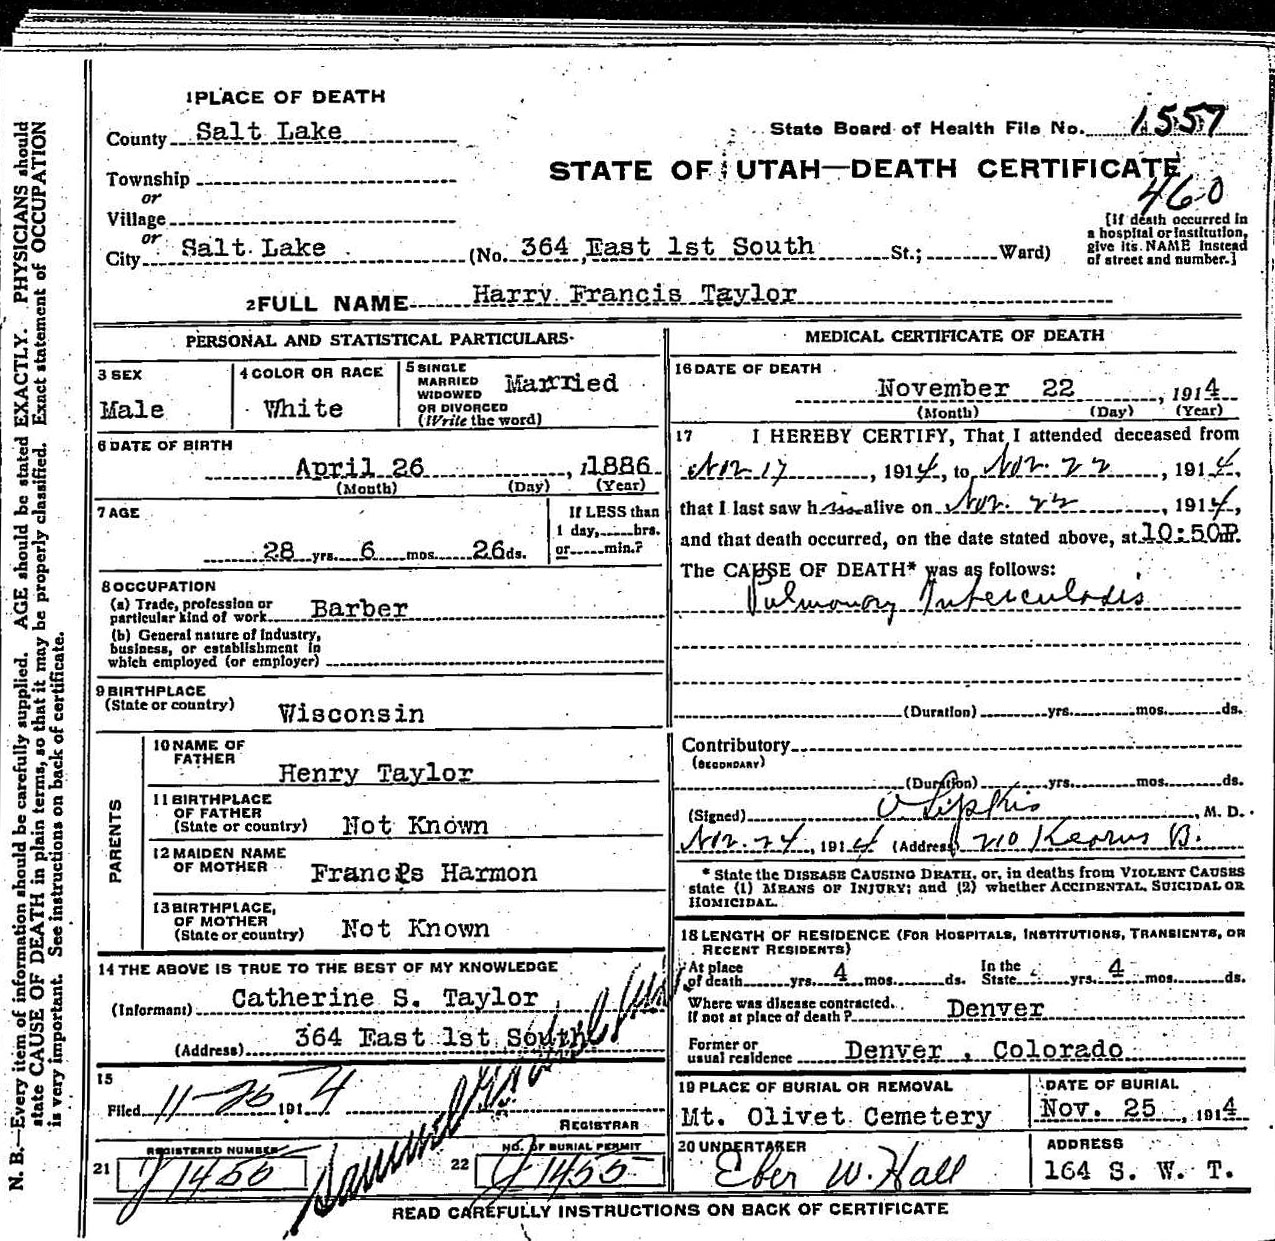 1 PLACE OF DEATH
County Salt Lake
State Board of Health File No. 1557
STATE OF UTAH—DEATH CERTIFICATE
460
Township
or
Village
or
City Salt Lake (No. 364 East 1st South St.; Ward)
[If death occurred in
a hospital or institution,
give its NAME instead
of street and number.]
2 FULL NAME Harry Francis Taylor
PERSONAL AND STATISTICAL PARTICULARS
3 SEX
Male
4 COLOR OR RACE
White
5 SINGLE
MARRIED
WIDOWED
OR DIVORCED
(Write the word)
Married
6 DATE OF BIRTH
April 26, 1886
(Month) (Day) (Year)
7 AGE
28 yrs. 6 mos. 26 ds.
If LESS than
1 day, hrs.
or min.?
8 OCCUPATION
(a) Trade, profession or
particular kind of work Barber
(b) General nature of industry,
business, or establishment in
which employed (or employer)
9 BIRTHPLACE
(State or country) Wisconsin
PARENTS
10 NAME OF
FATHER
Henry Taylor
11 BIRTHPLACE
OF FATHER
(State or country) Not Known
12 MAIDEN NAME
OF MOTHER Francis Harmon
13 BIRTHPLACE,
OF MOTHER
(State or country) Not Known
14 THE ABOVE IS TRUE TO THE BEST OF MY KNOWLEDGE
(Informant) Catherine S. Taylor
(Address) 364 East 1st South
15
Filed 11-25 1914
REGISTRAR
21 REGISTERED NUMBER
J 1455
22 NO. OF BURIAL PERMIT
J 1455
MEDICAL CERTIFICATE OF DEATH
16 DATE OF DEATH
November 22, 1914
(Month) (Day) (Year)
17 I HEREBY CERTIFY, That I attended deceased from
Nov. 17, 1914, to Nov. 22, 1914,
that I last saw him alive on Nov. 22, 1914,
and that death occurred, on the date stated above, at 10:50P.
The CAUSE OF DEATH* was as follows:
Pulmonary Tuberculosis
(Duration) yrs. mos. ds.
Contributory
(SECONDARY)
(Duration) yrs. mos. ds.
(Signed) M. D.
Nov. 24, 1914 (Address) 210 Kearns B.
* State the DISEASE CAUSING DEATH, or, in deaths from VIOLENT CAUSES
state (1) MEANS OF INJURY; and (2) whether ACCIDENTAL, SUICIDAL OR
HOMICIDAL.
18 LENGTH OF RESIDENCE (FOR HOSPITALS, INSTITUTIONS, TRANSIENTS, OR
RECENT RESIDENTS)
At place
of death yrs. 4 mos. ds. In the
State yrs. 4 mos. ds.
Where was disease contracted.
If not at place of death? Denver
Former or
usual residence Denver, Colorado
19 PLACE OF BURIAL OR REMOVAL
Mt. Olivet Cemetery
DATE OF BURIAL
Nov. 25, 1914
20 UNDERTAKER
Eber W. Hall
ADDRESS
164 S. W. T.
READ CAREFULLY INSTRUCTIONS ON BACK OF CERTIFICATE
N. B.—Every item of information should be carefully supplied. AGE should be stated EXACTLY. PHYSICIANS should
state CAUSE OF DEATH in plain terms, so that it may be properly classified. Exact statement of OCCUPATION
is very important. See instructions on back of certificate.